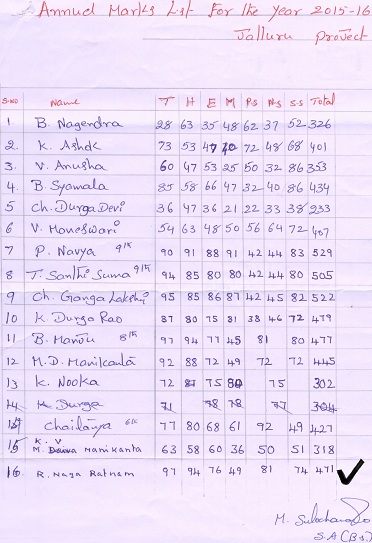 Annual Marks List For the Year 2015-16
Jalluru project
S.NO Name T H E M P.S N.S S.S Total
1 B. Nagendra 28 63 35 48 62 37 52 326
2. K. Ashok 73 53 47 70 72 48 68 401
3. V. Anusha 60 47 53 25 50 32 86 353
4. B. Syamala 85 58 66 47 32 40 86 434
5 Ch. Durga Devi 36 47 36 21 22 33 38 233
6 V. Maneswari 54 63 48 50 56 64 72 407
7 P. Navya 90 91 88 91 42 44 83 529
8 T. Santhi Suma 94 85 80 80 42 44 80 505
9 Ch. Ganga Lakshi 95 85 86 87 42 45 82 522
10 K. Durga Rao 87 80 75 81 38 46 72 479
11 B. 97 94 77 45 81 80 477
12 M.D. Manikanta 92 88 72 49 72 72 445
13 K. Nooka 72 87 75 80 75 302
14 K. Durga 71 78 78 77 304
Chaitanya 77 80 68 61 92 49 427
15 K. V Manikanta 63 58 60 36 50 51 318
16. R. Naga Ratnam 97 94 76 49 81 74 471
M.
S.A (B.S.)